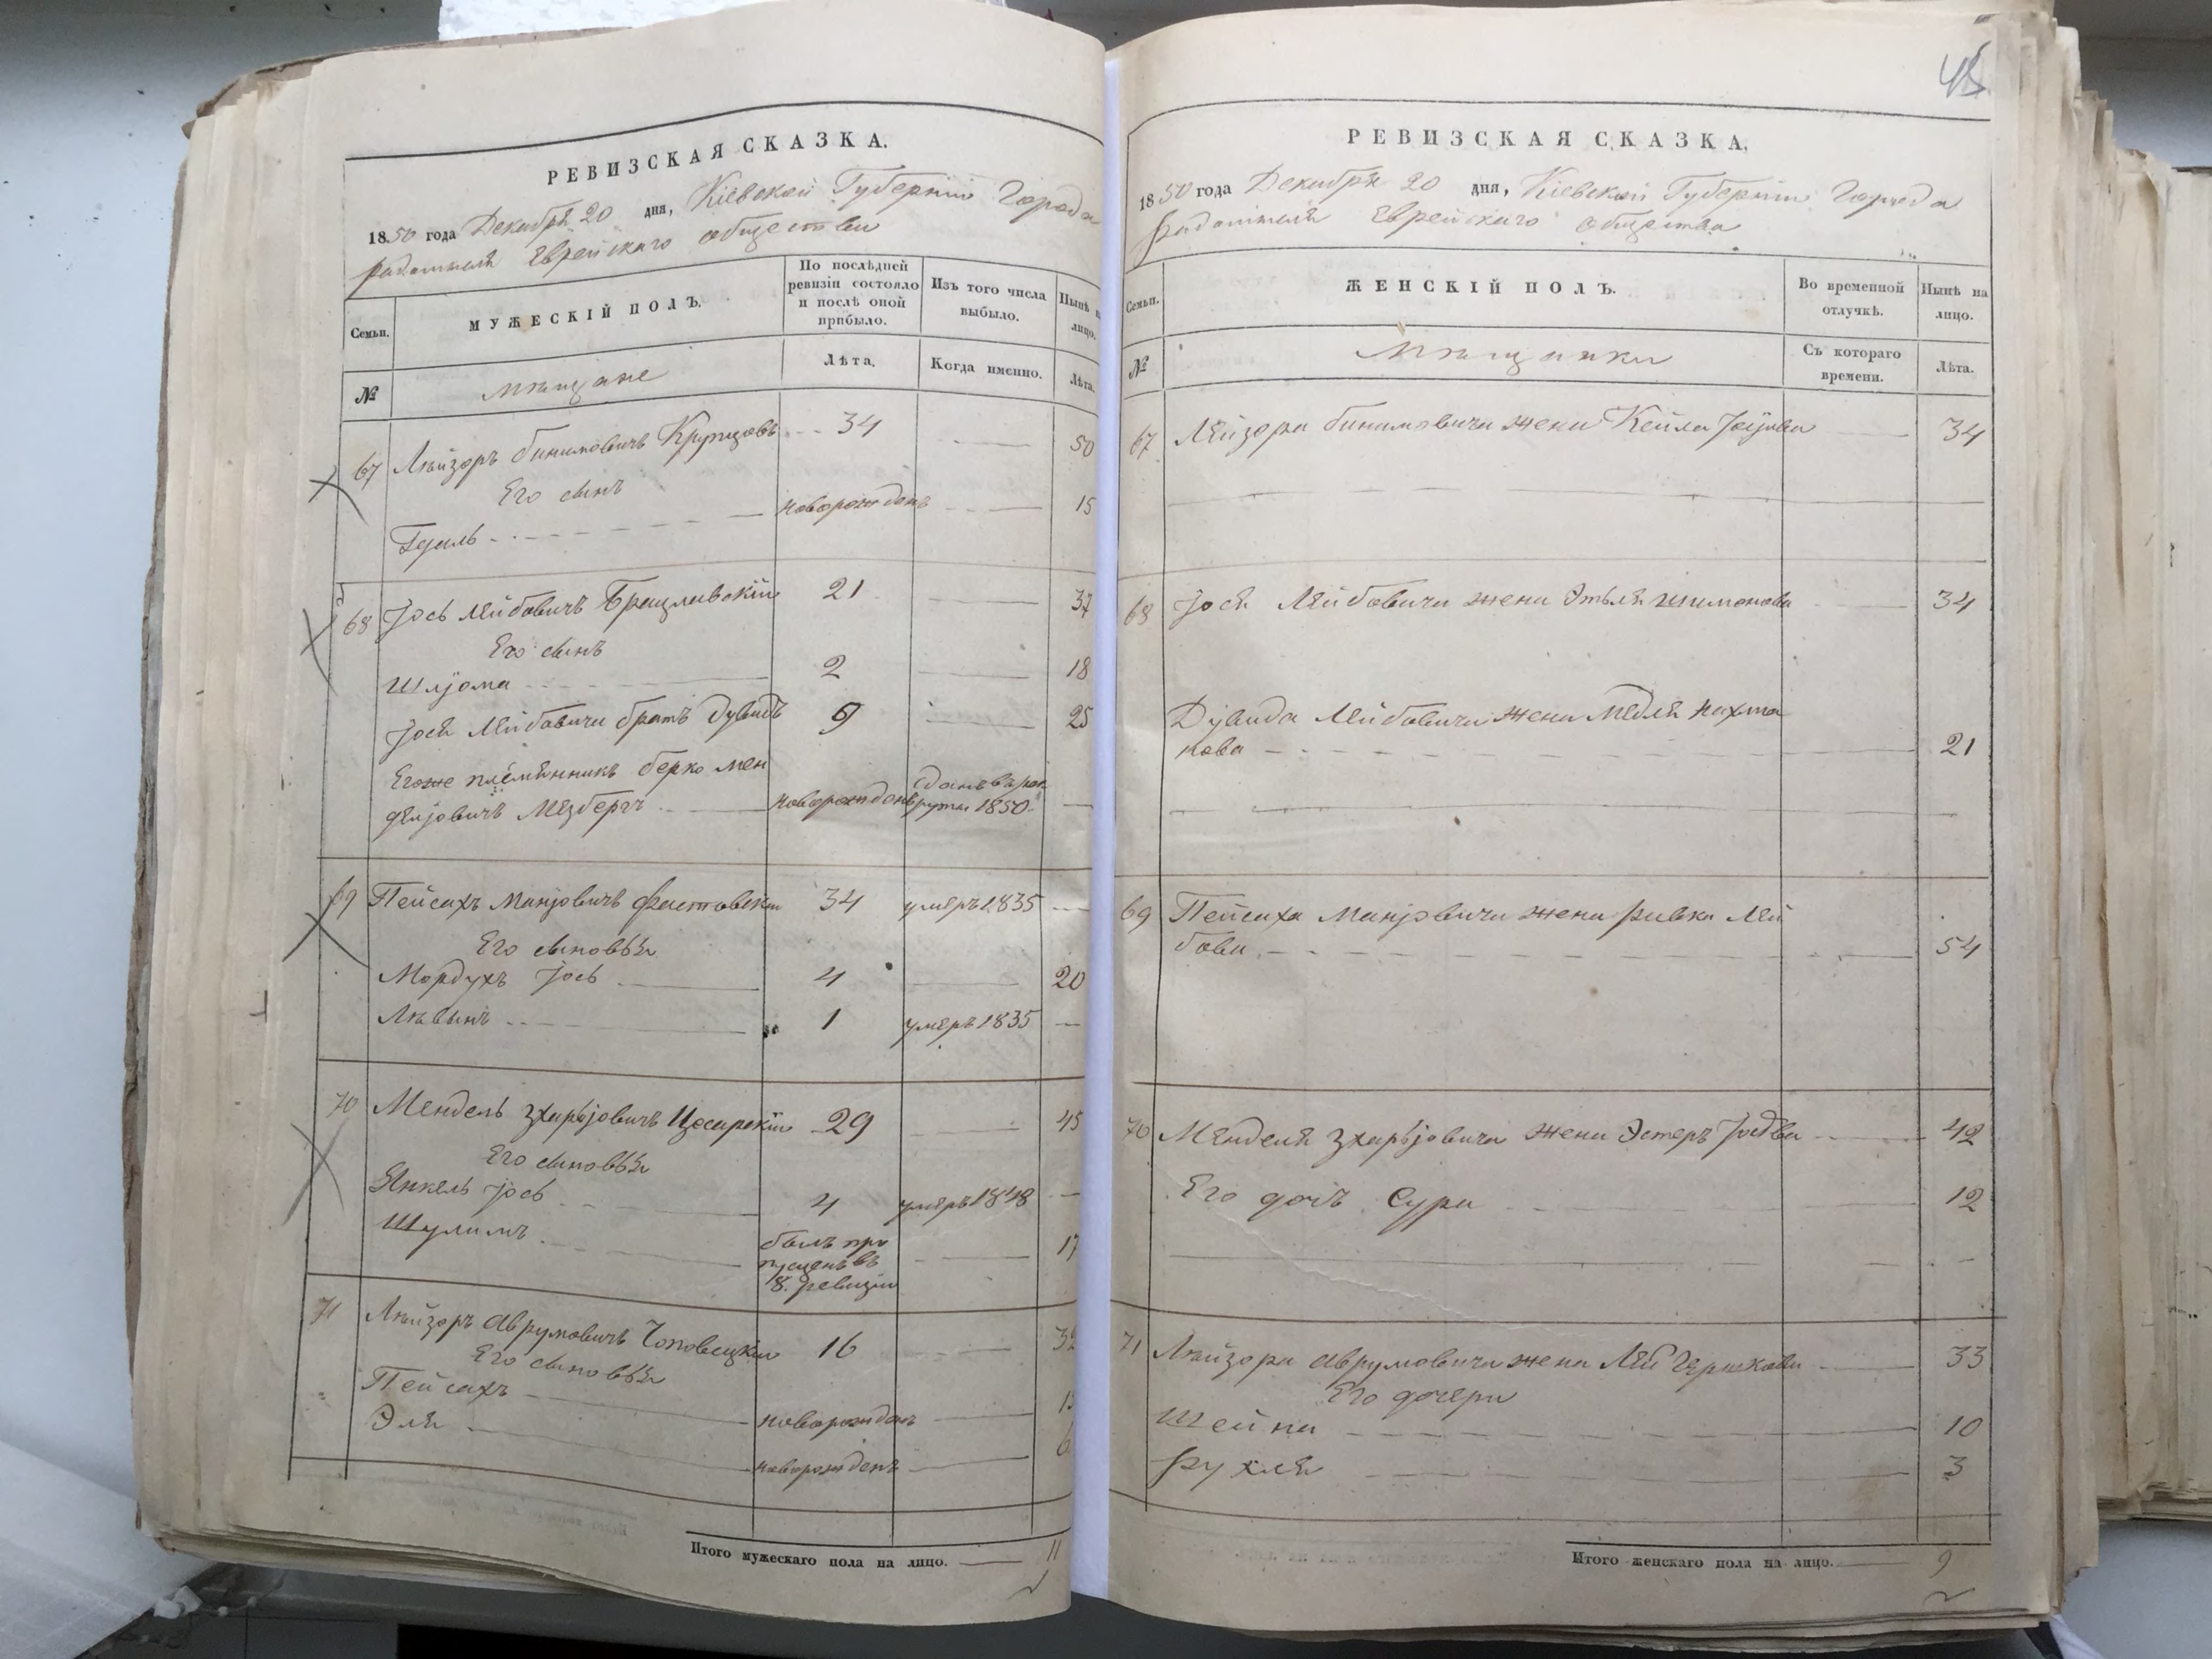 РЕВИЗСКАЯ СКАЗКА.
1850 года Декабря 20 дня, Кіевской Губерніи Города
Радомысля Еврейскаго общества
Семьи.
МУЖЕСКІЙ ПОЛЪ.
По послѣдней
ревизіи состояло
и послѣ оной
прибыло.
Изъ того числа
выбыло.
Нынѣ на
лицо.
№
Мѣщане
Лѣта.
Когда именно.
Лѣта.
67 Лейзоръ Бинимовичъ 34 50
Его сынъ
новорожденъ 15
68 Іось Лейбовичъ Брацлавскій 21 37
Его сынъ
Шліома 2 18
Іося Лейбовича братъ Дувидъ 9 25
Егоже племянникъ Берко Мен
деліовичъ Мезбергъ новорожденъ сданъ въ рек
руты 1850
69 Пейсахъ Маніовичъ Фастовскій 34 умеръ 1835
Его сыновья
Мордухъ Іось 4 20
1 умеръ 1835
70 Мендель Зхаріовичъ Цесарскій 29 45
Его сыновья
Янкель Іось 4 умеръ 1848
Шулимъ былъ про
пущенъ въ
8. ревизіи 17
71 Лейзоръ Аврумовичъ Чоповецкій 16 32
Его сыновья
Пейсахъ новорожденъ
Эля новорожденъ 6
Итого мужескаго пола на лицо. 11
45
РЕВИЗСКАЯ СКАЗКА.
1850 года Декабря 20 дня, Кіевской Губерніи Города
Радомысля Еврейскаго общества
Семьи.
ЖЕНСКІЙ ПОЛЪ.
Во временной
отлучкѣ.
Нынѣ на
лицо.
№
Мѣщанки
Съ котораго
времени.
Лѣта.
67 Лейзора Бинимовича жена Кейла 34
68 Іося Лейбовича жена Этьля Шимонова 34
Дувида Лейбовича жена Медля Нахма
нова 21
69 Пейсаха Маніовича жена Ривка Лей
бова 54
70 Менделя Зхаріовича жена Эстеръ 42
Его дочь Сура 12
71 Лейзора Аврумовича жена Лея 33
Его дочери
Шейна 10
Рухля 3
Итого женскаго пола на лицо. 9